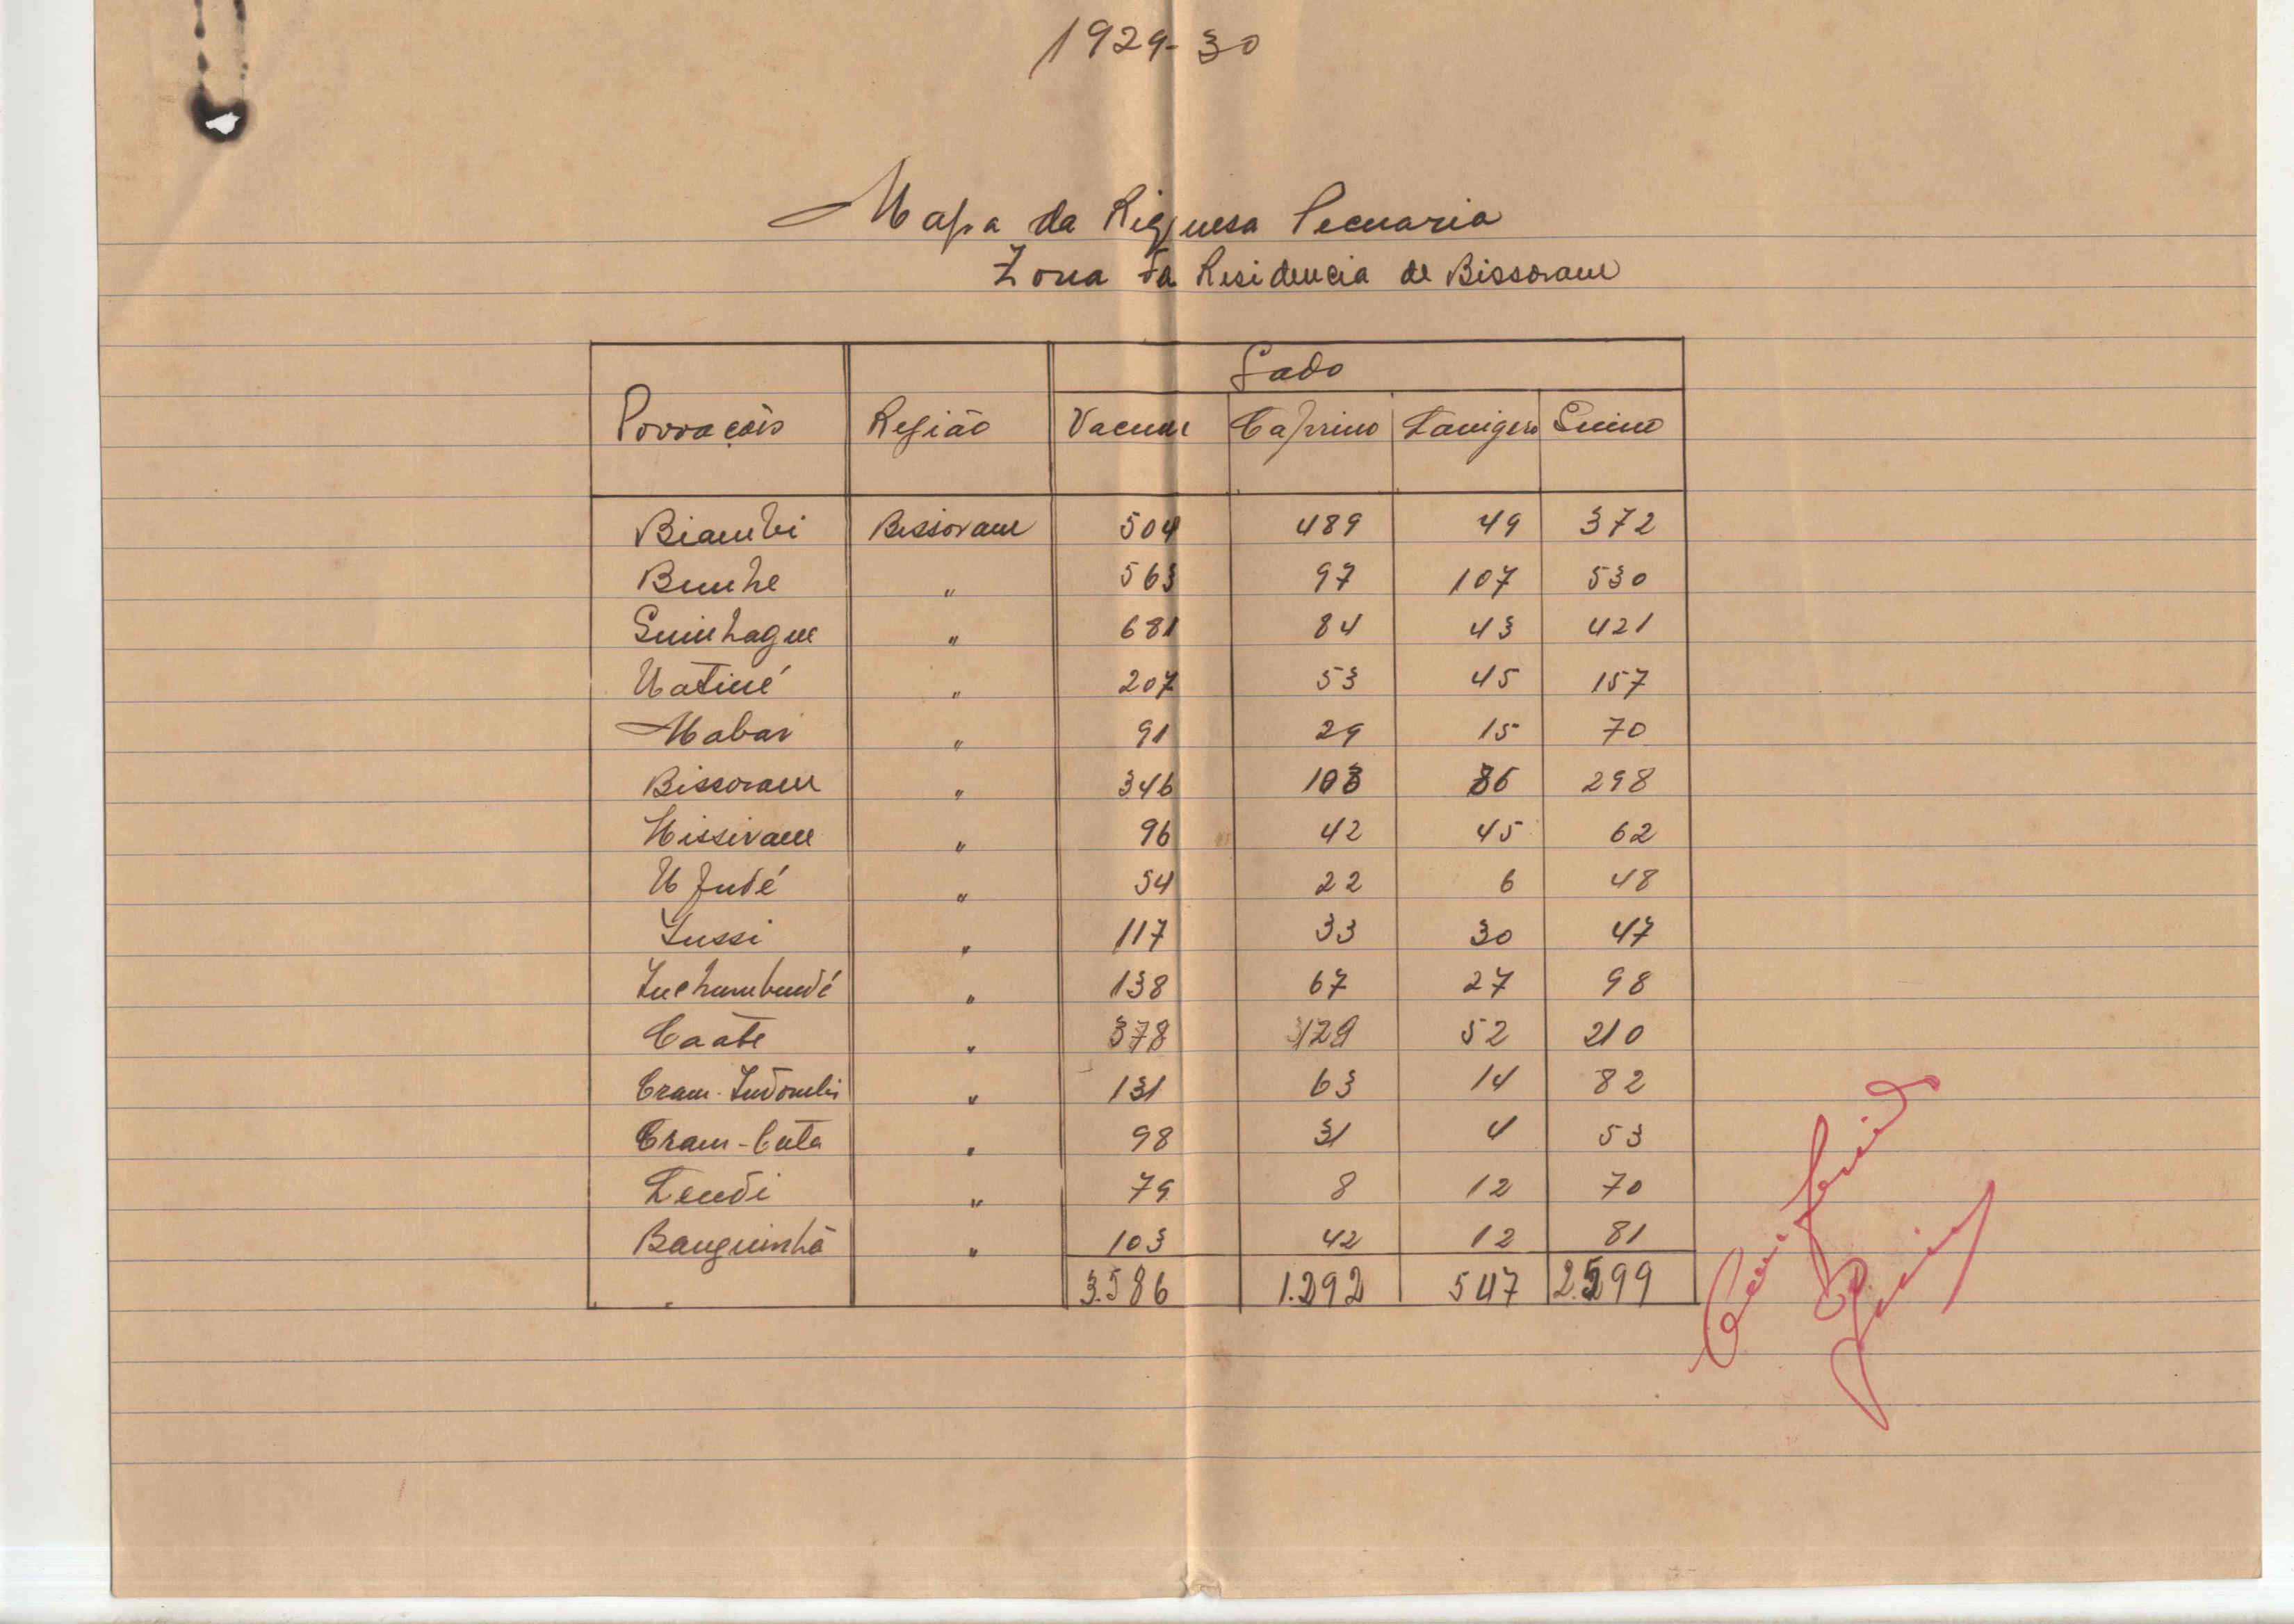 1929-30
Mapa da Riquesa Pecuaria
Zona da Residencia de Bissoram
Gado
Povoações Região Vacum Caprino Lanigero Suino
Biambi Bissoram 504 489 49 372
Bunhe " 563 97 107 530
Guinhague " 681 84 43 421
Natiné " 207 53 45 157
Mabar " 91 29 15 70
Bissoram " 346 103 86 298
Nissiram " 96 42 45 62
N'fudé " 54 22 6 48
Iussi " 117 33 30 47
Inchumbundé " 138 67 27 98
Caáte " 378 129 52 210
Cram-Indombi " 131 63 14 82
Cram-Cuta " 98 31 4 53
Lendi " 79 8 12 70
Banguinhã " 103 42 12 81
3.586 1.292 547 2.599